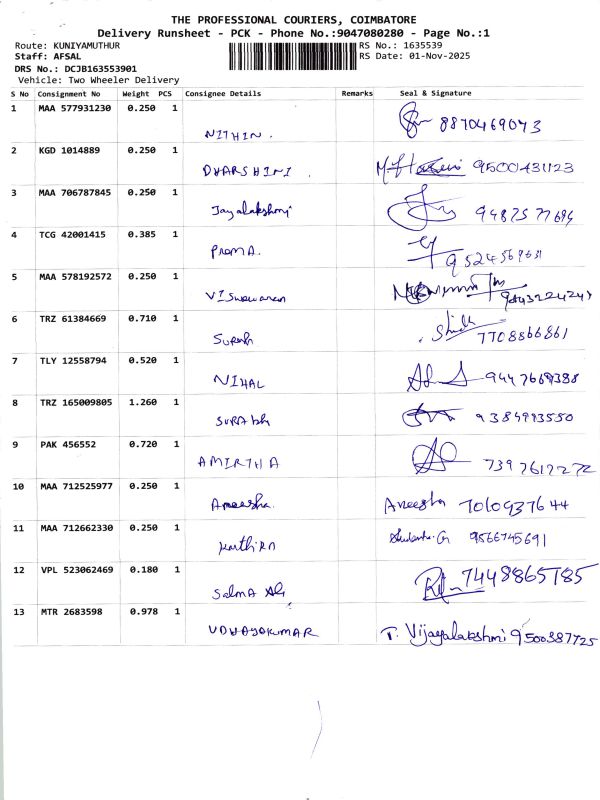 THE PROFESSIONAL COURIERS, COIMBATORE
Delivery Runsheet - PCK - Phone No.:9047080280 - Page No.:1
Route: KUNIYAMUTHUR RS No.: 1635539
Staff: AFSAL RS Date: 01-Nov-2025
DRS No.: DCJB163553901
Vehicle: Two Wheeler Delivery
S No Consignment No Weight PCS Consignee Details Remarks Seal & Signature
1 MAA 577931230 0.250 1
NITHIN. 8870469073
2 KGD 1014889 0.250 1
DHARSHINI. 9500431123
3 MAA 706787845 0.250 1
Jayalakshmi 9487577694
4 TCG 42001415 0.385 1
PremA. 9524569631
5 MAA 578192572 0.250 1
Viswawaran
6 TRZ 61384669 0.710 1
Suresh 7708866861
7 TLY 12558794 0.520 1
NIHAL 9447669388
8 TRZ 165009805 1.260 1
SURAbh 9384993550
9 PAK 456552 0.720 1
AMIRTHA 7397617272
10 MAA 712525977 0.250 1
Ameesha. Aneesha 7010937644
11 MAA 712662330 0.250 1
Karthika 9566745691
12 VPL 523062469 0.180 1
SalmA Ali 7448865785
13 MTR 2683598 0.978 1
UDHAYAKUMAR T. Vijayalakshmi 9500387725